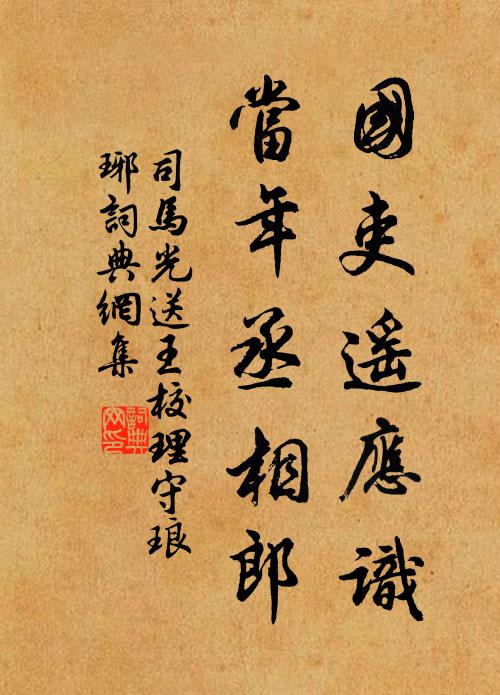 國吏遥應識
當年丞相郎
司馬光送王校理守琅
琊詞典網集
詞典
网印